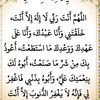 اللَّهُمَّ أَنْتَ رَبِّي لَا إِلَهَ إِلَّا أَنْتَ،
خَلَقْتَنِي وَأَنَا عَبْدُكَ، وَأَنَا عَلَى
عَهْدِكَ وَوَعْدِكَ مَا اسْتَطَعْتُ، أَعُوذُ
بِكَ مِنْ شَرِّ مَا صَنَعْتُ، أَبُوءُ لَكَ
بِنِعْمَتِكَ عَلَيَّ، وَأَبُوءُ بِذَنْبِي فَاغْفِرْ
لِي فَإِنَّهُ لَا يَغْفِرُ الذُّنُوبَ إِلَّا أَنْتَ